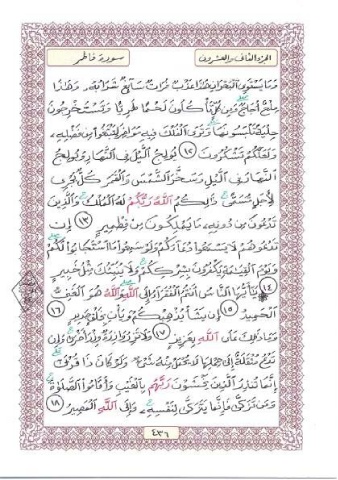 الجزء الثانى والعشرون
سورة فاطر
وما يستوى البحران هذا عذب فرات سائغ شرابه وهذا
ملح أجاج ومن كل تأكلون لحما طريا وتستخرجون
حلية تلبسونها وترى الفلك فيه مواخر لتبتغوا من فضله
ولعلكم تشكرون ١٢ يولج اليل فى النهار ويولج
النهار فى اليل وسخر الشمس والقمر كل يجرى
لأجل مسمى ذلكم الله ربكم له الملك والذين
تدعون من دونه ما يملكون من قطمير ١٣ إن
تدعوهم لا يسمعوا دعاءكم ولو سمعوا ما استجابوا لكم
ويوم القيمة يكفرون بشرككم ولا ينبئك مثل خبير
١٤ يأيها الناس أنتم الفقراء إلى الله والله هو الغنى
الحميد ١٥ إن يشأ يذهبكم ويأت بخلق جديد ١٦
وما ذلك على الله بعزيز ١٧ ولا تزر وازرة وزر أخرى وإن
تدع مثقلة إلى حملها لا يحمل منه شىء ولو كان ذا قربى
إنما تنذر الذين يخشون ربهم بالغيب وأقاموا الصلوة
ومن تزكى فإنما يتزكى لنفسه وإلى الله المصير ١٨
٤٣٦